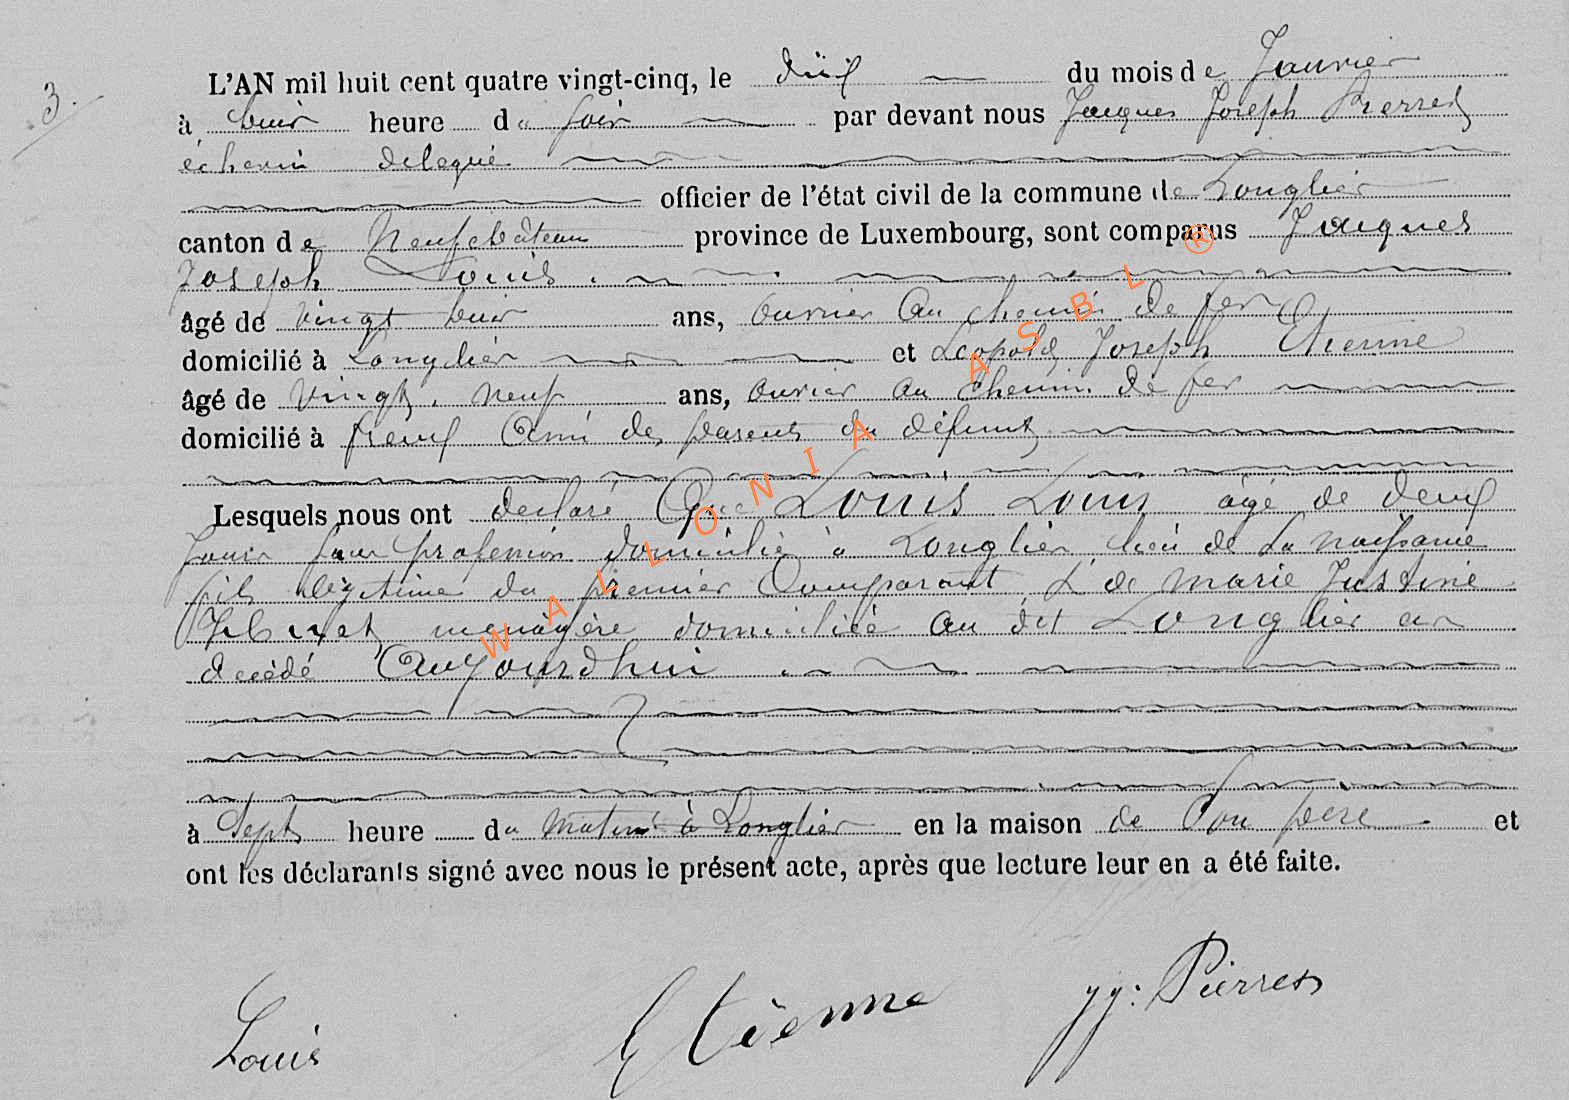 3.
L'AN mil huit cent quatre vingt-cinq, le dix du mois de Janvier
à huit heure du soir par devant nous Jacques Joseph Pierret
échevin delegué
officier de l'état civil de la commune de Longlier
canton de Neufchâteau province de Luxembourg, sont comparus Jacques
Joseph Louis
âgé de vingt huit ans, ouvrier au chemin de fer
domicilié à Longlier et Léopold Joseph Etienne
âgé de vingt neuf ans, ouvrier au chemin de fer
domicilié à ami des parents du défunt
Lesquels nous ont declaré Que Louis Louis âgé de deux
jours sans profession domicilié à Longlier lieu de sa naissance
fils légitime du premier Comparant & de Marie Justine
ménagère domiciliée au dit Longlier est
decédé Aujourdhui
à Sept heure du matin à Longlier en la maison de Son père et
ont les déclarants signé avec nous le présent acte, après que lecture leur en a été faite.
Louis Etienne JJ: Pierret
WALLONIA ASBL ®